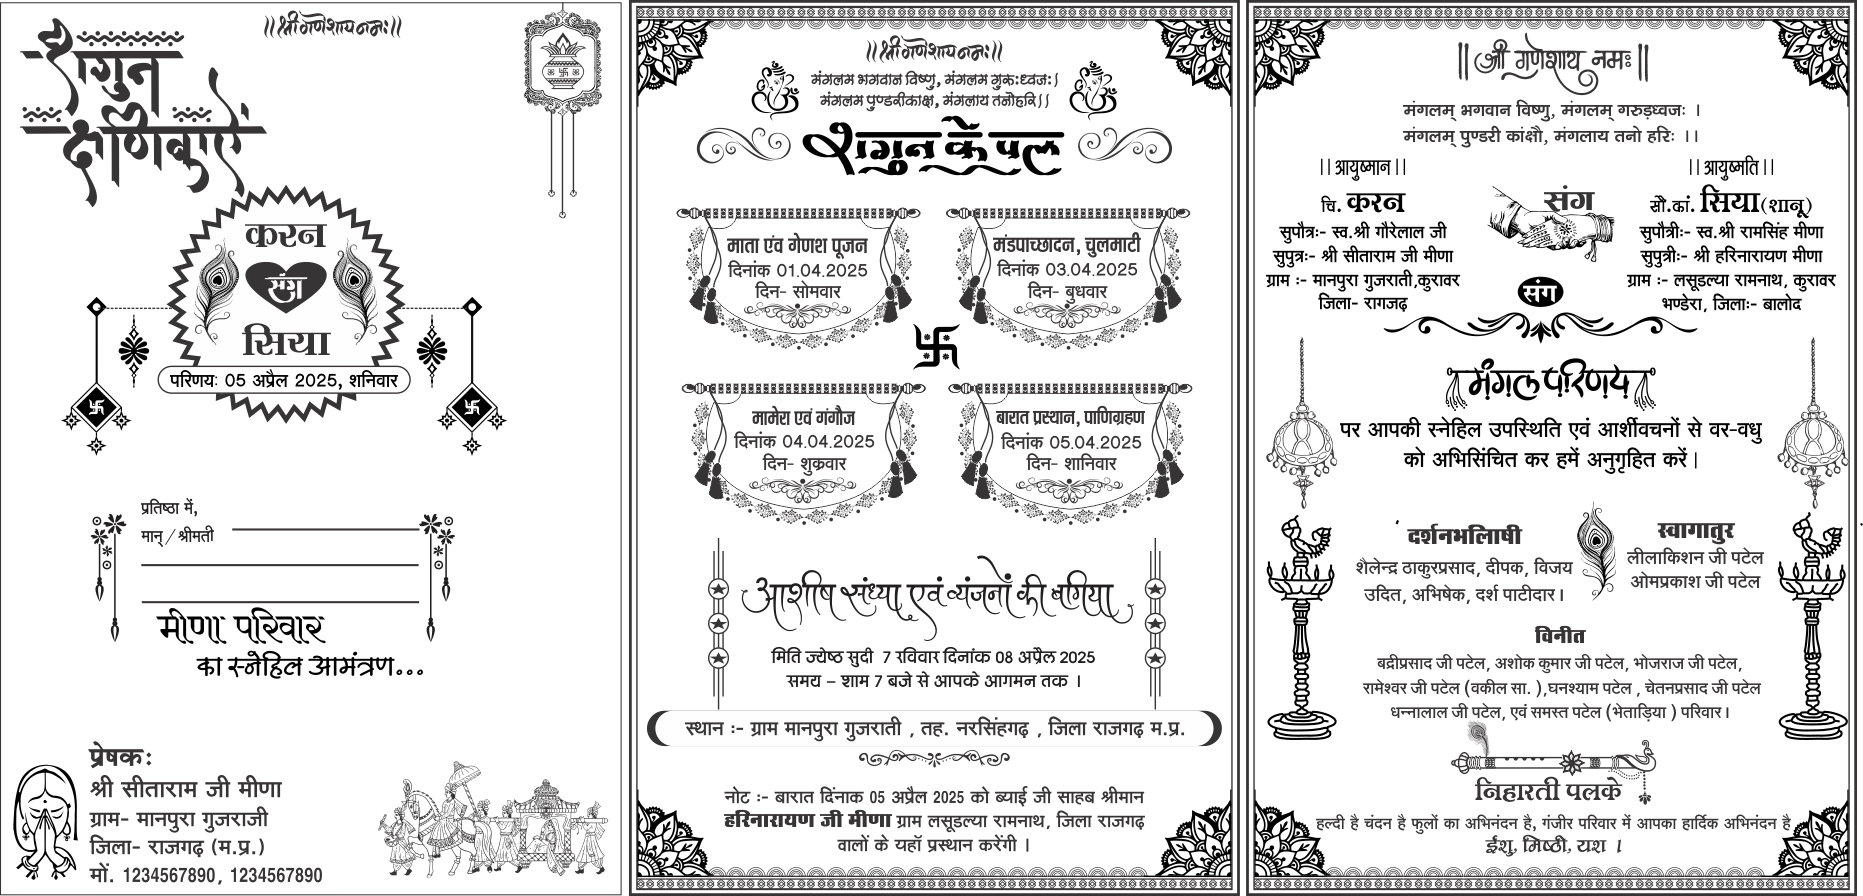 ।।श्री गणेशाय नमः।।
शगुन
क्षणिकाएें
करन
संग
सिया
परिणयः 05 अप्रैल 2025, शनिवार
प्रतिष्ठा में,
मान् / श्रीमती
मीणा परिवार
का स्नेहिल आमंत्रण...
प्रेषकः
श्री सीताराम जी मीणा
ग्राम- मानपुरा गुजराजी
जिला- राजगढ़ (म.प्र.)
मों. 1234567890, 1234567890
।।श्री गणेशाय नमः।।
मंगलम भगवान विष्णु, मंगलम गुकःध्वजः।
मंगलम पुण्डरीकाक्ष, मंगलाय तनोहरि।।
शगुन के पल
माता एंव गेणश पूजन
दिनांक 01.04.2025
दिन- सोमवार
मंडपाच्छादन, चुलमाटी
दिनांक 03.04.2025
दिन- बुधवार
मामेरा एवं गंगौज
दिनांक 04.04.2025
दिन- शुक्रवार
बारात प्रस्थान, पाणिग्रहण
दिनांक 05.04.2025
दिन- शानिवार
आशीष संध्या एवं व्यंजनों की बगिया
मिति ज्येष्ठ सुदी 7 रविवार दिनांक 08 अप्रैल 2025
समय – शाम 7 बजे से आपके आगमन तक ।
स्थान :- ग्राम मानपुरा गुजराती , तह. नरसिंहगढ़ , जिला राजगढ़ म.प्र.
नोट :- बारात दिंनाक 05 अप्रैल 2025 को ब्याई जी साहब श्रीमान
हरिनारायण जी मीणा ग्राम लसूडल्या रामनाथ, जिला राजगढ़
वालों के यहॉ प्रस्थान करेंगी ।
|| श्री गणेशाय नमः ||
मंगलम् भगवान विष्णु, मंगलम् गरुड़ध्वजः ।
मंगलम् पुण्डरी कांक्षौ, मंगलाय तनो हरिः ।।
।। आयुष्मान ।।
चि. करन
सुपौत्रः- स्व.श्री गौरेलाल जी
सुपुत्रः- श्री सीताराम जी मीणा
ग्राम :- मानपुरा गुजराती,कुरावर
जिला- रागजढ़
संग
।। आयुष्मति ।।
सौ.कां. सिया (शानू)
सुपौत्रीः- स्व.श्री रामसिंह मीणा
सुपुत्रीः- श्री हरिनारायण मीणा
ग्राम :- लसूडल्या रामनाथ, कुरावर
भण्डेरा, जिलाः- बालोद
संग
मंगल परिणय
पर आपकी स्नेहिल उपस्थिति एवं आर्शीवचनों से वर-वधु
को अभिसिंचित कर हमें अनुगृहित करें।
दर्शनभलािषी
शैलेन्द्र ठाकुरप्रसाद, दीपक, विजय
उदित, अभिषेक, दर्श पाटीदार।
स्वागातुर
लीलाकिशन जी पटेल
ओमप्रकाश जी पटेल
विनीत
बद्रीप्रसाद जी पटेल, अशोक कुमार जी पटेल, भोजराज जी पटेल,
रामेश्वर जी पटेल (वकील सा. ),घनश्याम पटेल , चेतनप्रसाद जी पटेल
धन्नालाल जी पटेल, एवं समस्त पटेल (भेताड़िया ) परिवार।
निहारती पलके
हल्दी है चंदन है फुलों का अभिनंदन है, गंजीर परिवार में आपका हार्दिक अभिनंदन है
ईशु, मिष्ठी, यश ।